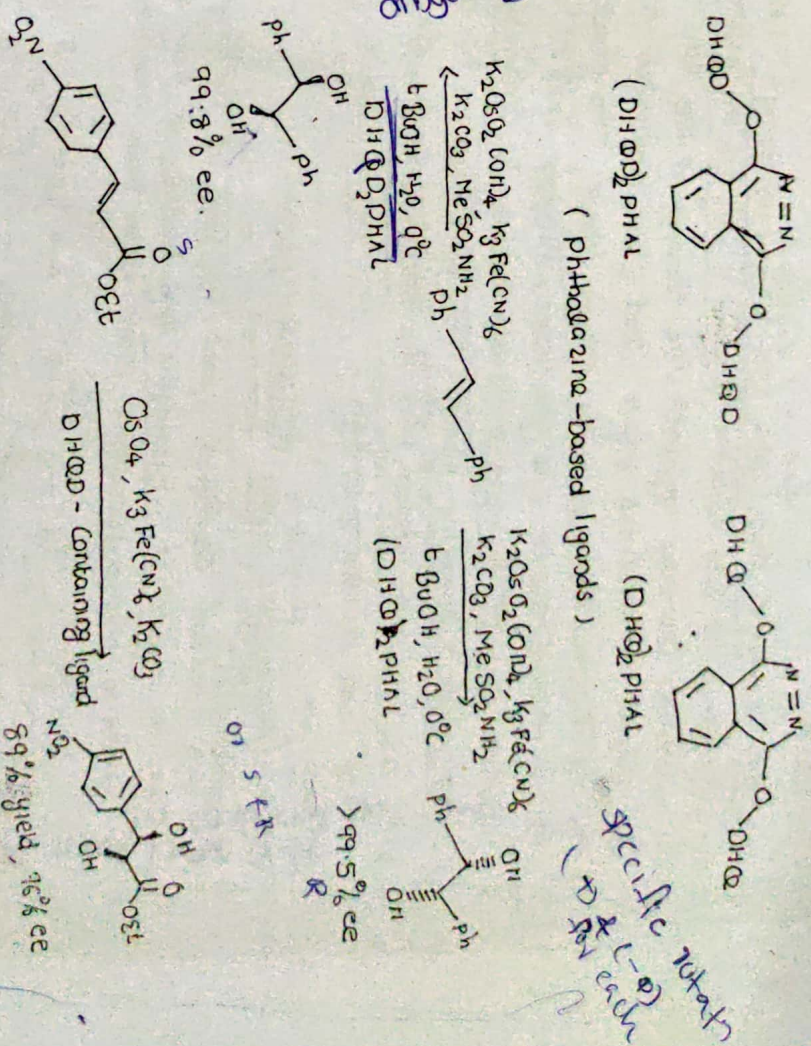 DHQD O N=N O DHQD
(DHQD)2 PHAL
DHQ O N=N O DHQ
(DHQ)2 PHAL
( phthalazine-based ligands )
specific
(+) & (-)
for each
K2OsO2(OH)4, K3Fe(CN)6
K2CO3, MeSO2NH2
t BuOH, H2O, 0°C
DHQD2PHAL
Ph OH
OH Ph
99.8% ee.
Ph Ph
K2OsO2(OH)4, K3Fe(CN)6
K2CO3, MeSO2NH2
t BuOH, H2O, 0°C
(DHQ)2PHAL
Ph OH
OH Ph
>99.5% ee
R
S
O2N O OEt
OsO4, K3Fe(CN)6, K2CO3
DHQD - containing ligand
OH O
NO2 OH OEt
89% yield, 96% ee